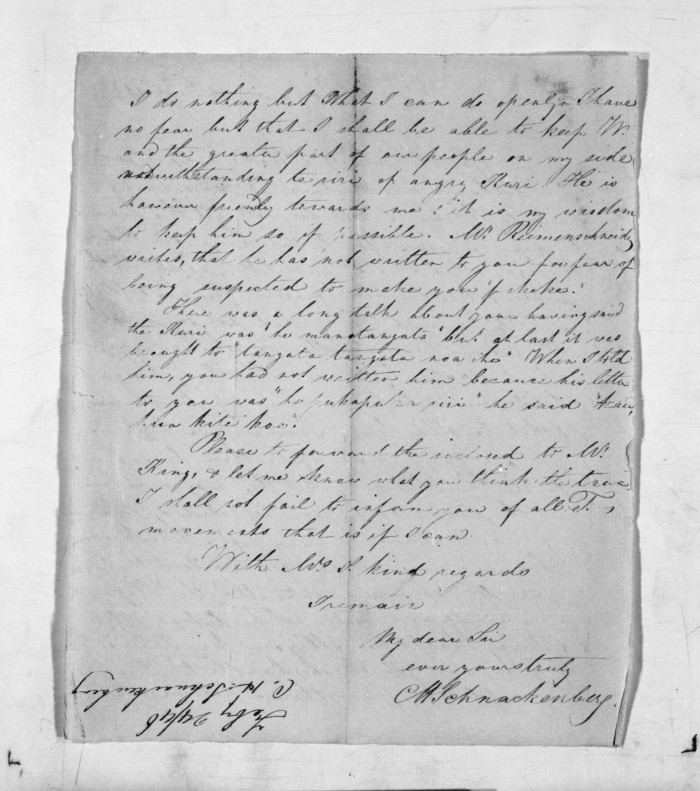 I do nothing but what I can do openly. I have
no fear but that I shall be able to keep W.
and the greater part of our people on my side
notwithstanding te riri of angry Kuri. He is
however friendly towards me & it is my wisdom
to keep him so if possible. Mr. Riemenschneider
writes, that he has not written to you for fear of
being suspected to make you
There was a long talk about your having said
the Kuri was "he manotangata" but at last it was
brought to "tangata tangata noa iho" When I told
him, you had not written him because his letter
to you was "he pukapuka riri" he said
kite koe".
Please to forward the inclosed to Mr.
King, & let me know what you think the
I shall not fail to inform you of all T.'s
movements that is if I can.
With Mrs S. kind regards
I remain
My dear Sir
ever yours truly
CH Schnackenberg.
C. H. Schnackenberg
Feby 24/46